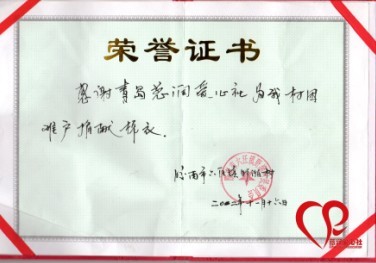 荣誉证书
感谢青岛慈润爱心社为我村困
难户捐献棉衣。
胶南市六汪镇 村
十一月十六日